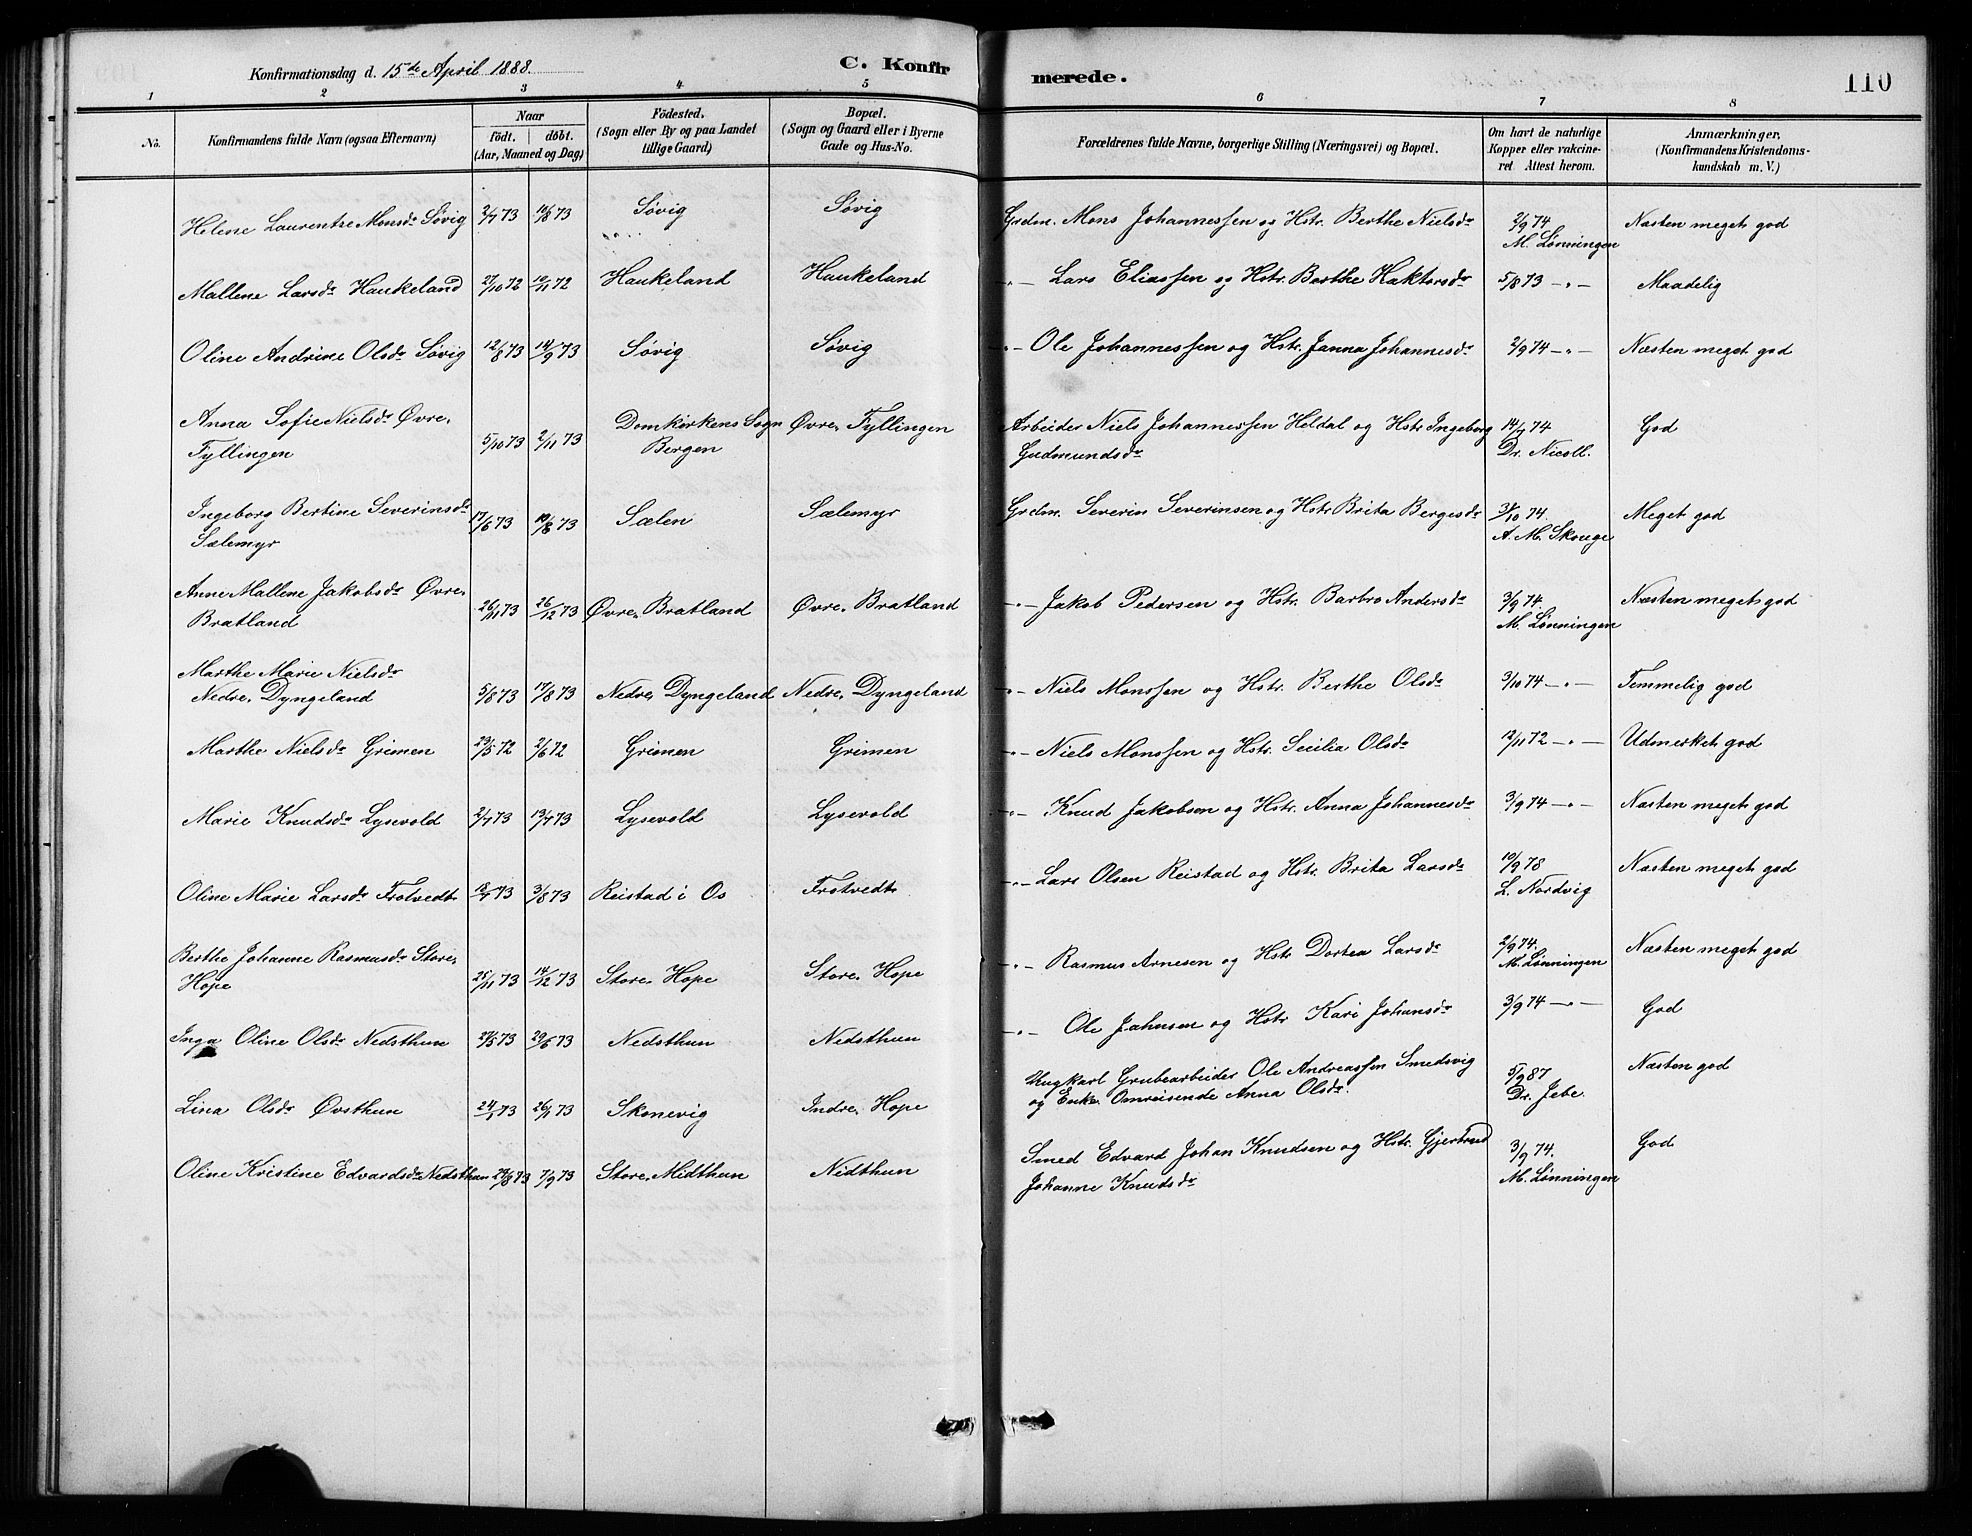 Konfirmationsdag d. 15de April 1888.
C. Konfir
merede.
110
1 2 3 4 5 6 7 8
No.
Konfirmandens fulde Navn (ogsaa Efternavn)
Naar
födt. döbt.
(Aar, Maaned og Dag)
Födested.
(Sogn eller By og paa Landet
tillige Gaard)
Bopæl.
(Sogn og Gaard eller i Byerne
Gade og Hus-No.
Forældrenes fulde Navne, borgerlige Stilling (Næringsvei) og Bopæl.
Om havt de naturlige
Kopper eller vakcine-
ret Attest herom.
Anmærkninger,
(Konfirmandens Kristendoms-
kundskab m. V.)
Helene Laurentze Monsdr Søvig 2/7 73 10/8 73 Søvig Søvig Grdm. Mons Johannessen og Hstr. Berthe Nielsdr 2/9 74 Næsten meget god
M. Lønningen
Mallene Larsdr Haukeland 27/10 72 10/11 72 Haukeland Haukeland -"- Lars Eliassen og Hstr. Berthe Haktorsdr 5/8 73 -"- Maadelig
Oline Andrine Olsdr Søvig 12/8 73 14/9 73 Søvig Søvig -"- Ole Johannessen og Hstr. Janna Johannesdr 2/9 74 -"- Næsten meget god
Anna Sofie Nielsdr Øvre, Domkirkens Sogn Øvre, Fyllingen Arbeider Niels Johannessen Heldal og Hstr Ingeborg 14/7 74 God
Fyllingen 5/10 73 2/11 73 Bergen Gudmundsdr Dr. Nicoll.
Ingeborg Bertine Severinsdr 17/6 73 10/8 73 Sælen Sælemyr Grdm. Severin Severinsen og Hstr Brita Bergesdr 3/10 74 Meget god
Sælemyr A. M. Skouge
Anne Mallene Jakobsdr Øvre, 26/11 73 26/12 73 Øvre, Bratland Øvre, Bratland -"- Jakob Pedersen og Hstr. Barbro Andersdr 3/9 74. Næsten meget god
Bratland M. Lønningen
Marthe Marie Nielsdr
Nedre, Dyngeland 5/8 73 17/8 73 Nedre, Dyngeland Nedre, Dyngeland -"- Niels Monssen og Hstr. Berthe Olsdr 3/10 74 -"- Temmelig god
Marthe Nielsdr Grimen 23/5 72 2/6 72 Grimen Grimen -"- Niels Monssen og Hstr. Secilia Olsdr 12/11 72 -"- Udmerket god
Marie Knudsdr Lysevold 2/4 73 13/4 73 Lysevold Lysevold -"- Knud Jakobsen og Hstr. Anna Johannesdr 3/9 74 -"- Næsten meget god
Oline Marie Larsdr Frotvedt 12/7 73 3/8 73 Reistad i Os Frotvedt -"- Lars Olsen Reistad og Hstr. Brita Larsdr 10/9 78 Næsten meget god
L. Nordvig
Berthe Johanne Rasmusdr Store, 25/11 73 14/12 73 Store, Hope Store, Hope -"- Rasmus Arnesen og Hstr Dortea Larsdr 2/9 74. Næsten meget god
Hope M. Lønningen
Inga Oline Olsdr Nedsthun 21/5 73 29/6 73 Nedsthun Nedsthun -"- Ole Johnsen og Hstr Kari Johansdr 3/9 74 -"- God
Lina Olsdr Øvsthun 24/1 73 26/1 73 Skonevig Indre, Hope Ungkarl Grubearbeider Ole Andreassen Smedsvig 5/9 87 Næsten god
og Enke Omreisende Anna Olsdr. Dr. Jebe.
Oline Kristine Edvardsdr Nedsthun 24/8 73 7/9 73 Store, Midthun Nidthun Smed Edvard Johan Knudsen og Hstr. Gjertrud 3/9 74. God
Johanne Knudsdr M. Lønningen